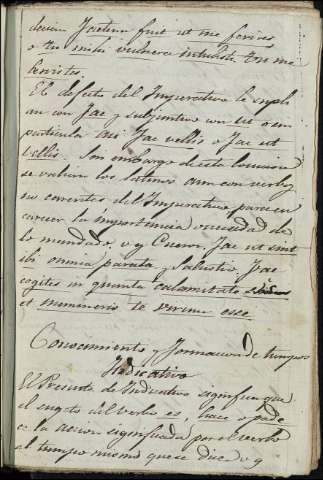 decian Jactum fuit ut me ferires
o tu mihi vulnera intulisti tu me
heristes.
El defecto del Imperativo lo suplian
con Fac y subjuntivo con ut o sin
particula asi Fac vellis o Fac ut
vellis. Son embargo de esta locucion
se valian los latinos aun con verbos
no carentes del Imperativo para en
carecer la importancia o necesidad de
lo mandado, v g Ciceron. Fac ut sint
ibi omnia parata y Salustio. Fac
cogites in quanta calamitate
et numineris te virum esse
Conocimiento y formacion de tiempos
Indicativo
El Presente de Indicativo significa que
el sugeto del verbo es, hace o pade
ce la accion significada por el verbo
al tiempo mismo que se dice v g